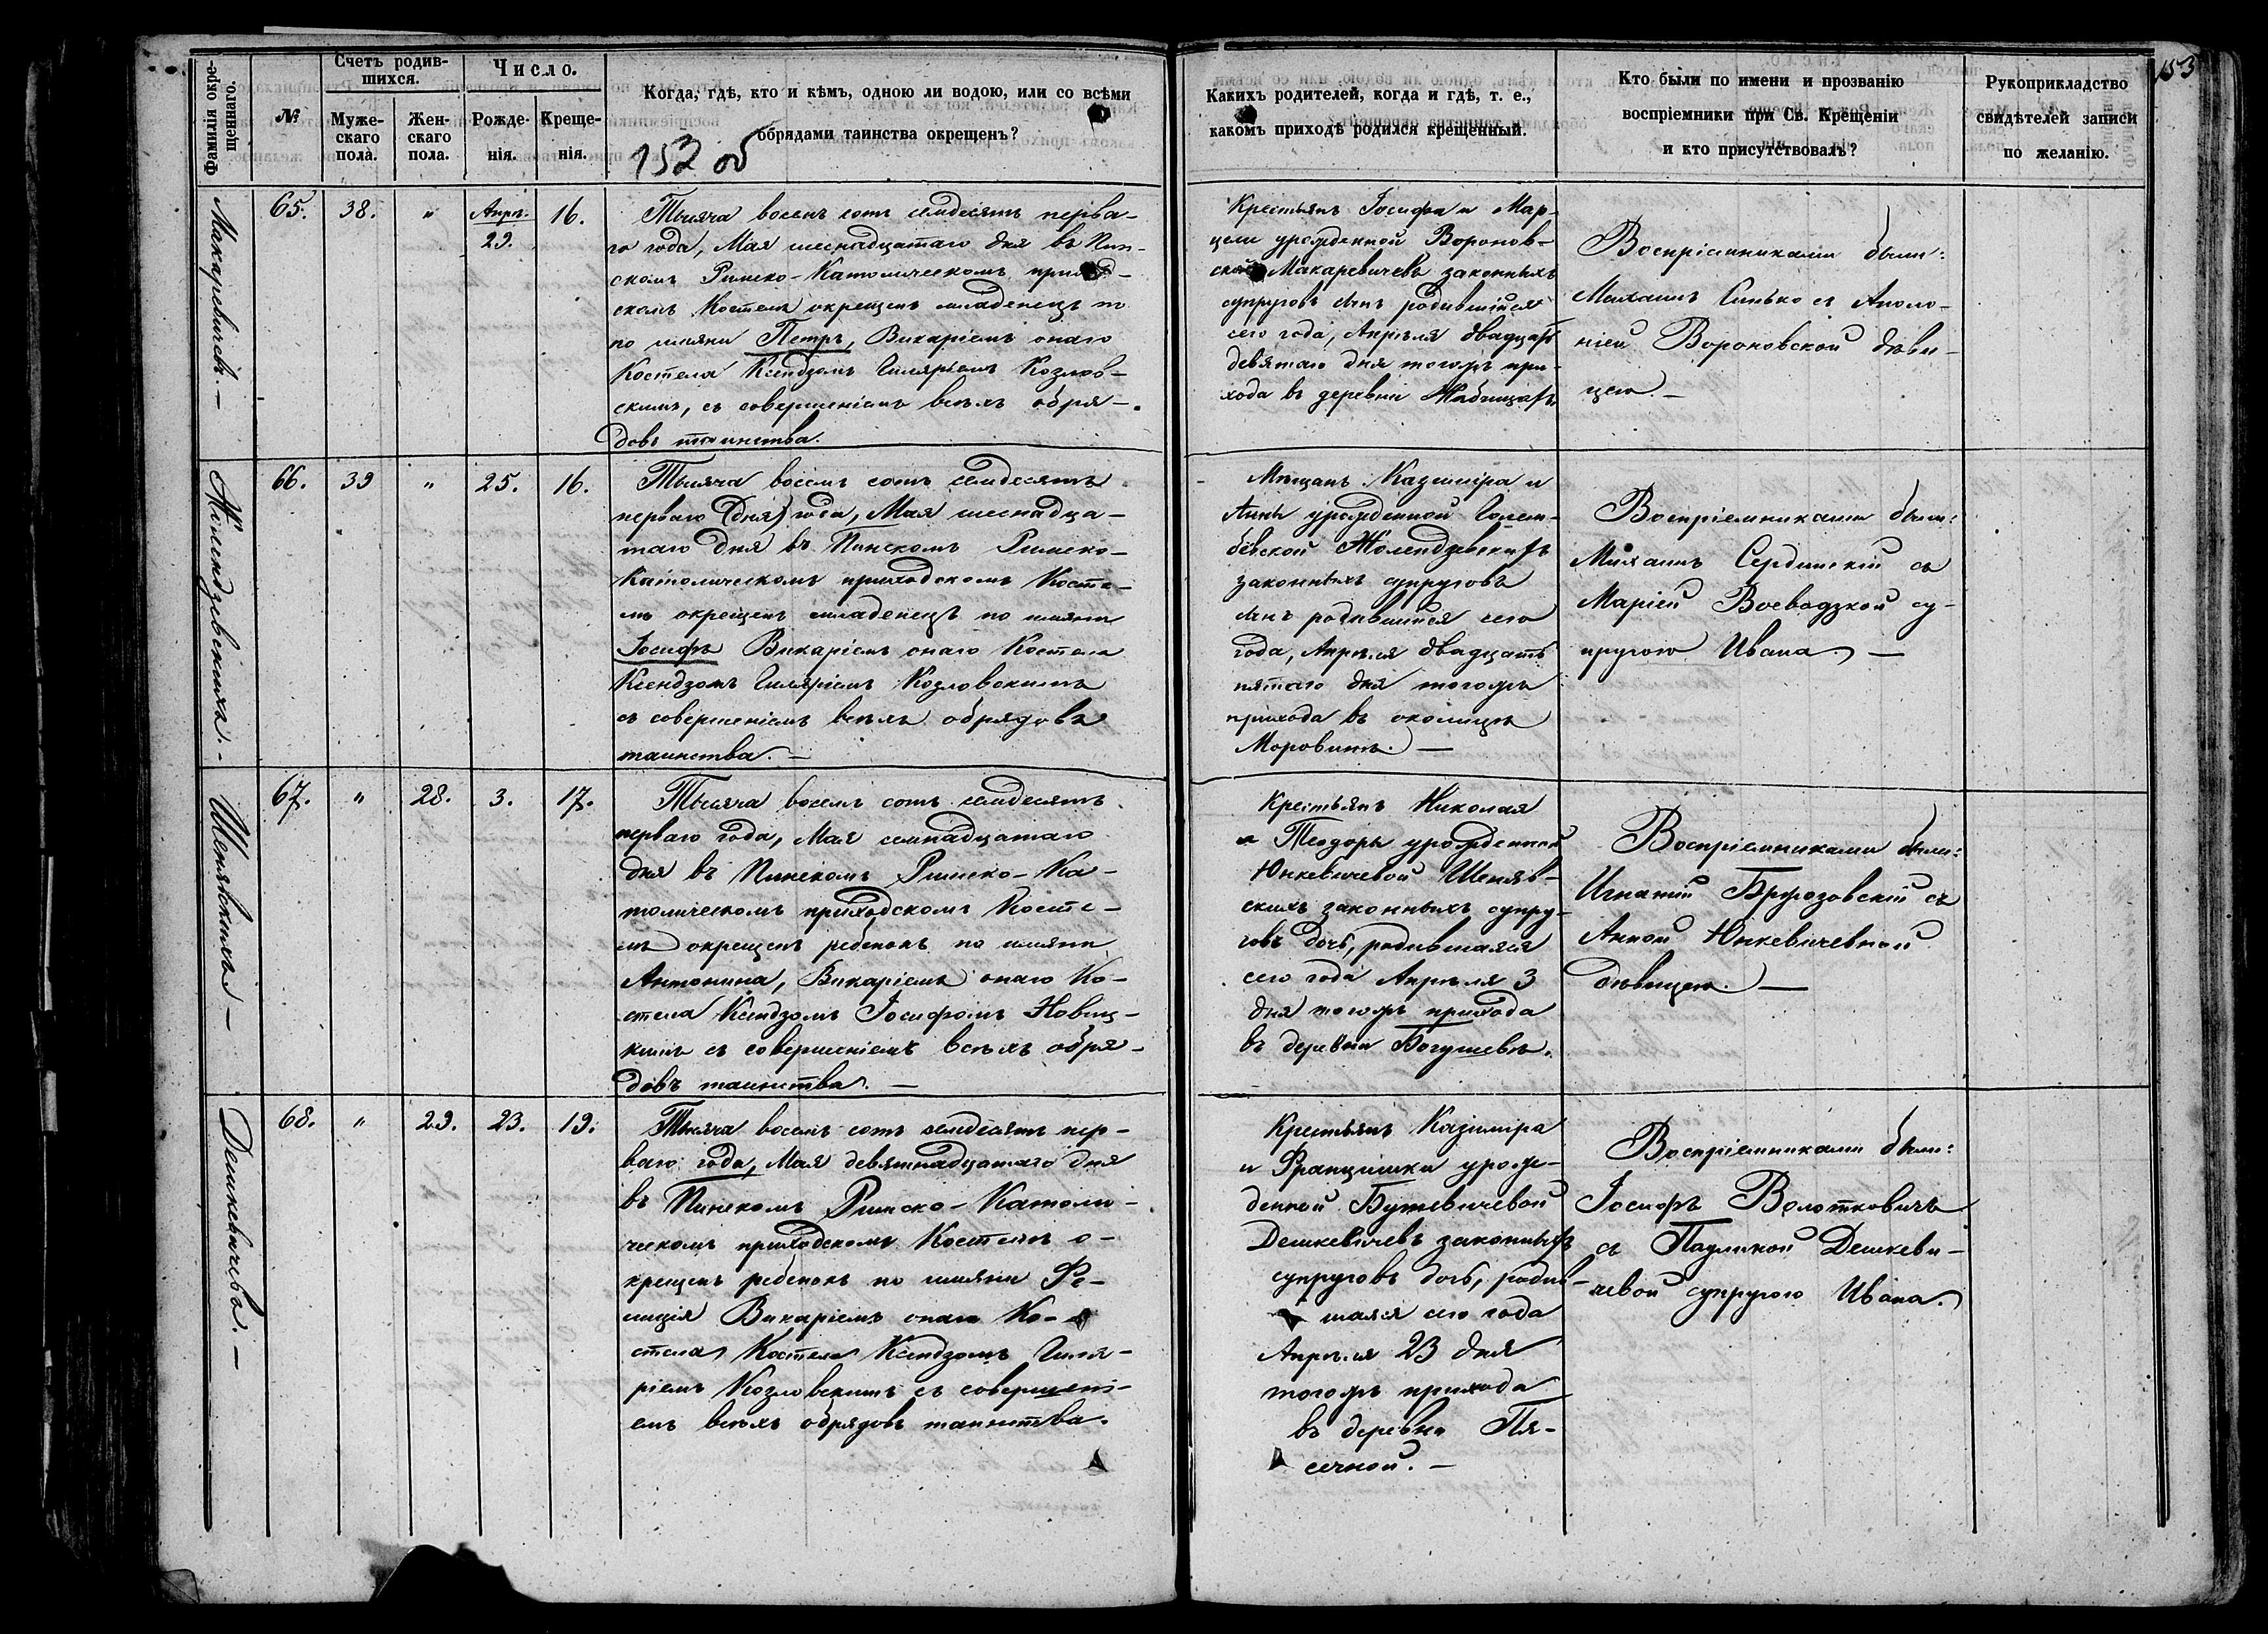 Фамилія окре-
щеннаго.
№
Счетъ родив-
шихся.
Муже-
скаго
пола.
Жен-
скаго
пола.
Число.
Рожде-
нія.
Креще-
нія.
Когда, гдѣ, кто и кѣмъ, одною ли водою, или со всѣми
обрядами таинства окрещенъ?
152 об
Какихъ родителей, когда и гдѣ, т. е.,
какомъ приходѣ родился крещенный.
Кто были по имени и прозванію
воспріемники при Св. Крещеніи
и кто присутствовалъ?
Рукоприкладство
свидѣтелей записи
по желанію.
153
Макаревичевъ. —
65.
38.
"
Апрѣ.
29.
16.
Тысяча восемь сотъ семдесятъ перва-
го года, Мая шеснадцатаго дня въ Пин-
скомъ Римско-Католическомъ приход-
скомъ Костелѣ окрещенъ младенецъ
по имяни Петръ, Викаріемъ онаго
Костела Ксендзомъ Гиляріемъ Козлов-
скимъ, съ совершеніемъ всѣхъ обря-
довъ таинства.
Крестьянъ Іосифа и Мар-
цели урожденной Воронов-
ской Макаревичевъ законныхъ
супруговъ сынъ родившійся
сего года, Апрѣля двадцать
девятаго дня тогожъ при-
хода въ деревни
Воспріемниками были:
Михаилъ Синько съ Аполо-
ніей Вороновской дѣви-
цею. —
Жолендзевскихъ. -
66.
39
"
25.
16.
Тысяча восемь сотъ семдесятъ
перваго (дня) года, Мая шеснадца-
таго дня въ Пинскомъ Римско-
Католическомъ приходскомъ Косте-
лѣ окрещенъ младенецъ по имяни
Іосифъ Викаріемъ онаго Костела
Ксендзомъ Гиляріемъ Козловскимъ
съ совершеніемъ всѣхъ обрядовъ
таинства. —
Мѣщанъ Казиміра и
Анны урожденной Голем-
бевской Жолендзевскихъ
законныхъ супруговъ
сынъ родившійся сего
года, Апрѣля двадцать
пятаго дня тогожъ
прихода въ околицѣ
Моровинъ. —
Воспріемниками были:
Михаилъ Сердинскій съ
Маріей Воеводзкой су-
пругою Ивана. —
Шенявскихъ —
67.
"
28.
3.
17.
Тысяча восемь сотъ семдесятъ
перваго года, Мая семнадцатаго
дня въ Пинскомъ Римско-Ка-
толическомъ приходскомъ Косте-
лѣ окрещенъ ребенокъ по имяни
Антонина, Викаріемъ онаго Ко-
стела Ксендзомъ Іосифомъ Новиц-
кимъ съ совершеніемъ всѣхъ обря-
довъ таинства. —
Крестьянъ Николая
и Теодоры урожденной
Юнкевичевой Шеняв-
скихъ законныхъ супру-
говъ дочь, родившаяся
сего года Апрѣля 3
дня тогожъ прихода
въ деревни Богушевѣ.
Воспріемниками были:
Игнатій Бругозовскій съ
Анной Юнкевичевной
дѣвицею. —
Дешкевичевъ. —
68.
"
29.
23.
19.
Тысяча восемь сотъ семдесятъ пер-
ваго года, Мая девятнадцатаго дня
въ Пинскомъ Римско-Католи-
ческомъ приходскомъ Костелѣ о-
крещенъ ребенокъ по имяни Фе-
лиція Викаріемъ онаго Ко-
стела Костела Ксендзомъ Гиля-
ріемъ Козловскимъ съ совершені-
емъ всѣхъ обрядовъ таинства.
Крестьянъ Казиміра
и Францишки урож-
денной Бутевичевой
Дешкевичевъ законныхъ
супруговъ дочь, родив-
шаяся сего года
Апрѣля 23 дня
тогожъ прихода
въ деревни Пя-
сечной. —
Воспріемниками были:
Іосифъ Волотковичъ
съ Паулиной Дешкеви-
чевой супругою Ивана.